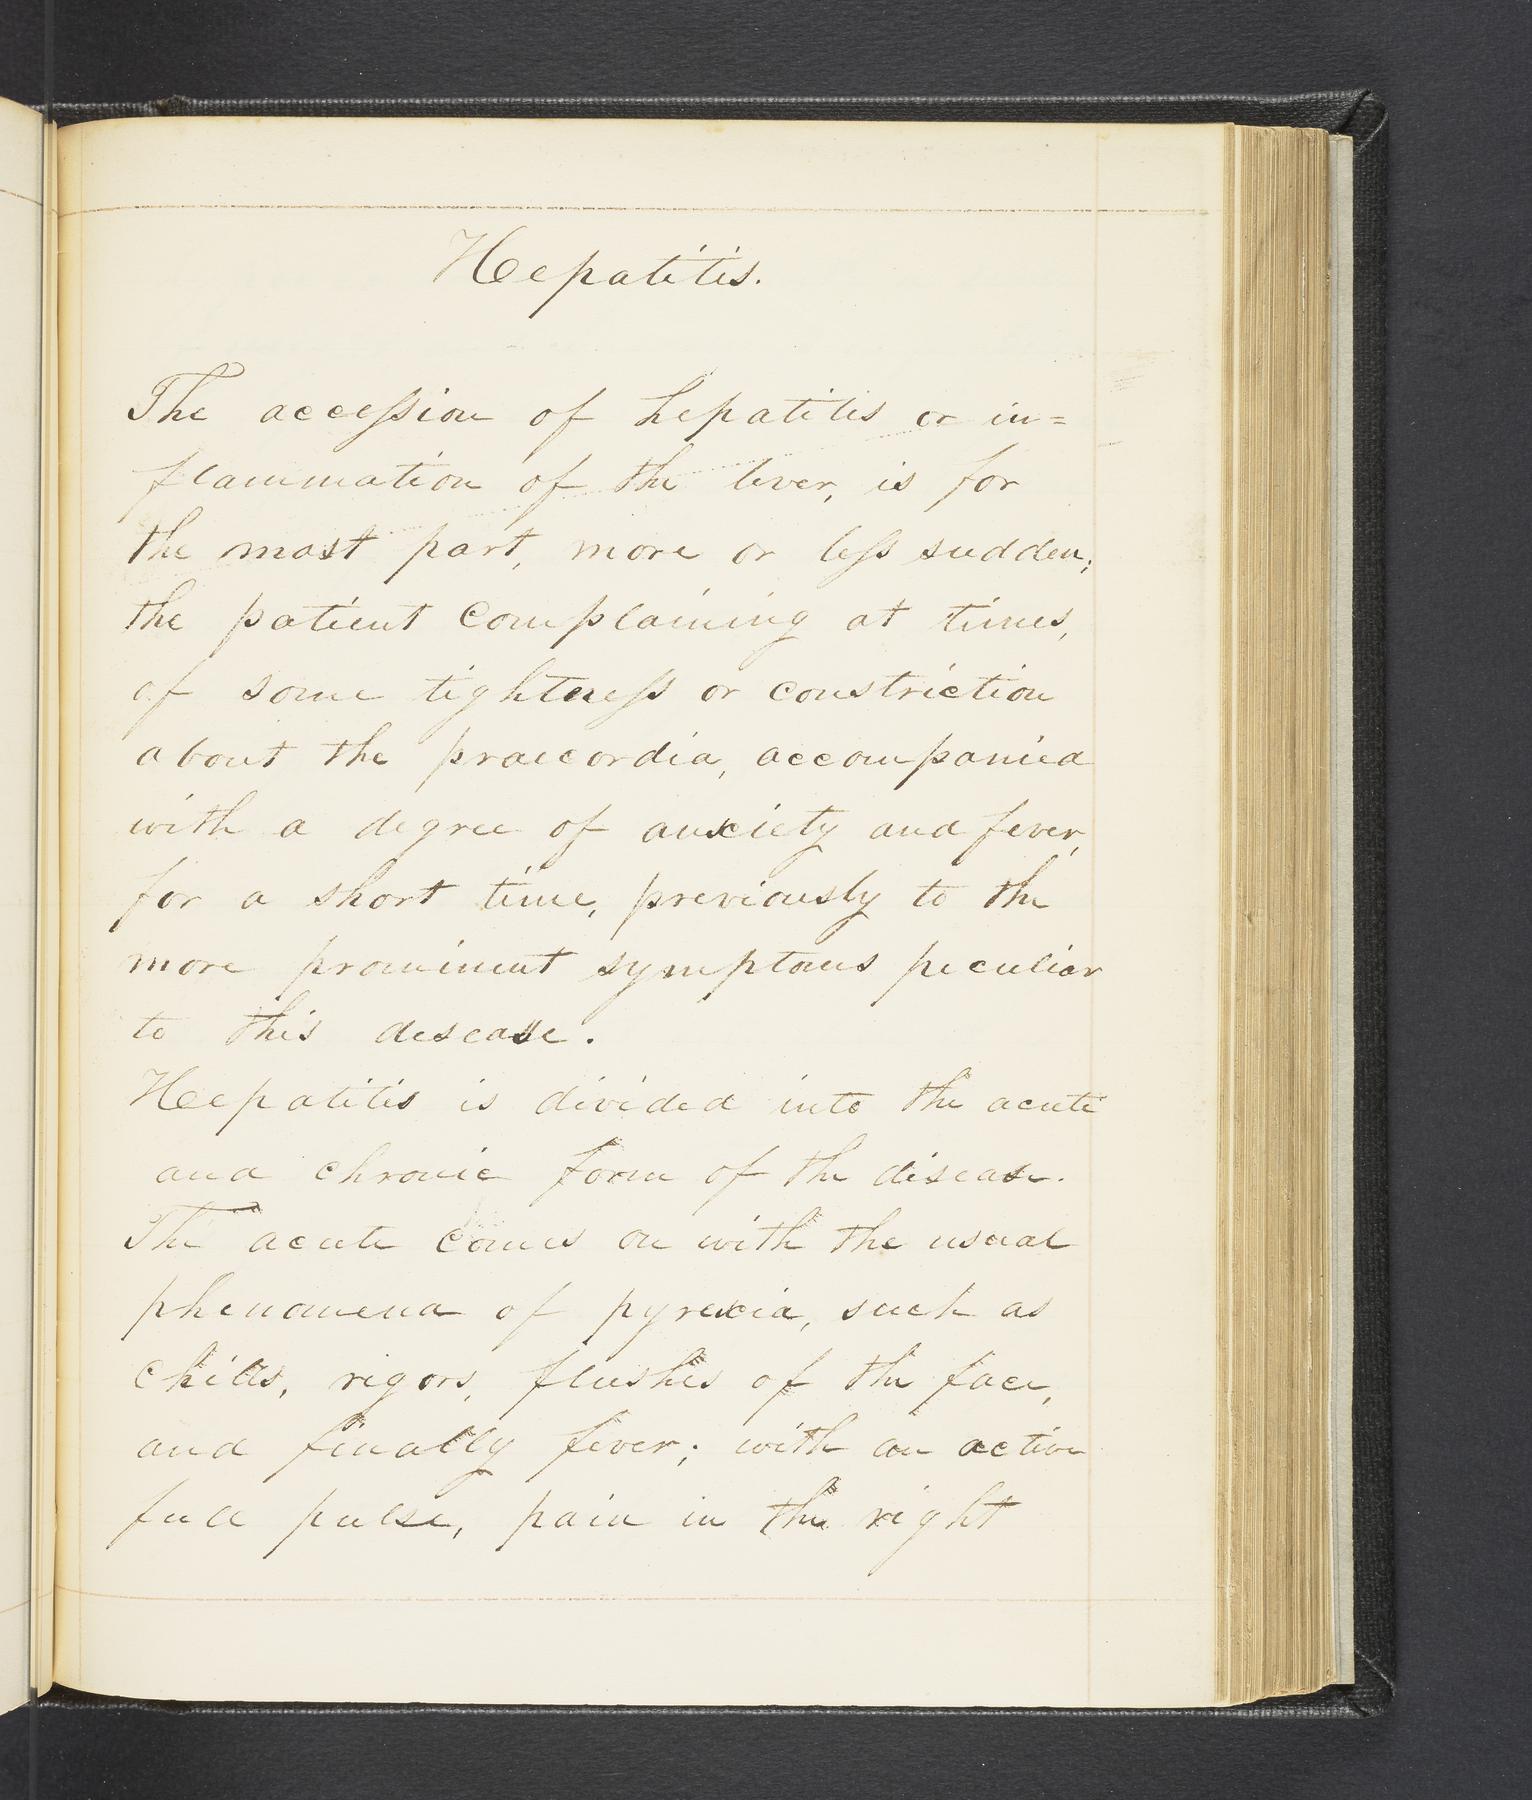 Hepatitis.
The accession of hepatitis or in=
flammation of the liver, is for
the most part, more or less sudden;
the patient complaining at times,
of some tightness or constriction
about the praecordia, accompanied
with a degree of anxiety and fever,
for a short time, previously to the
more prominent symptoms peculiar
to this disease.
Hepatitis is divided into the acute
and chronic form of the disease.
The acute comes on with the usual
phenomena of pyrexia, such as
chills, rigors, flushes of the face,
and finally fever; with an active
full pulse, pain in the right